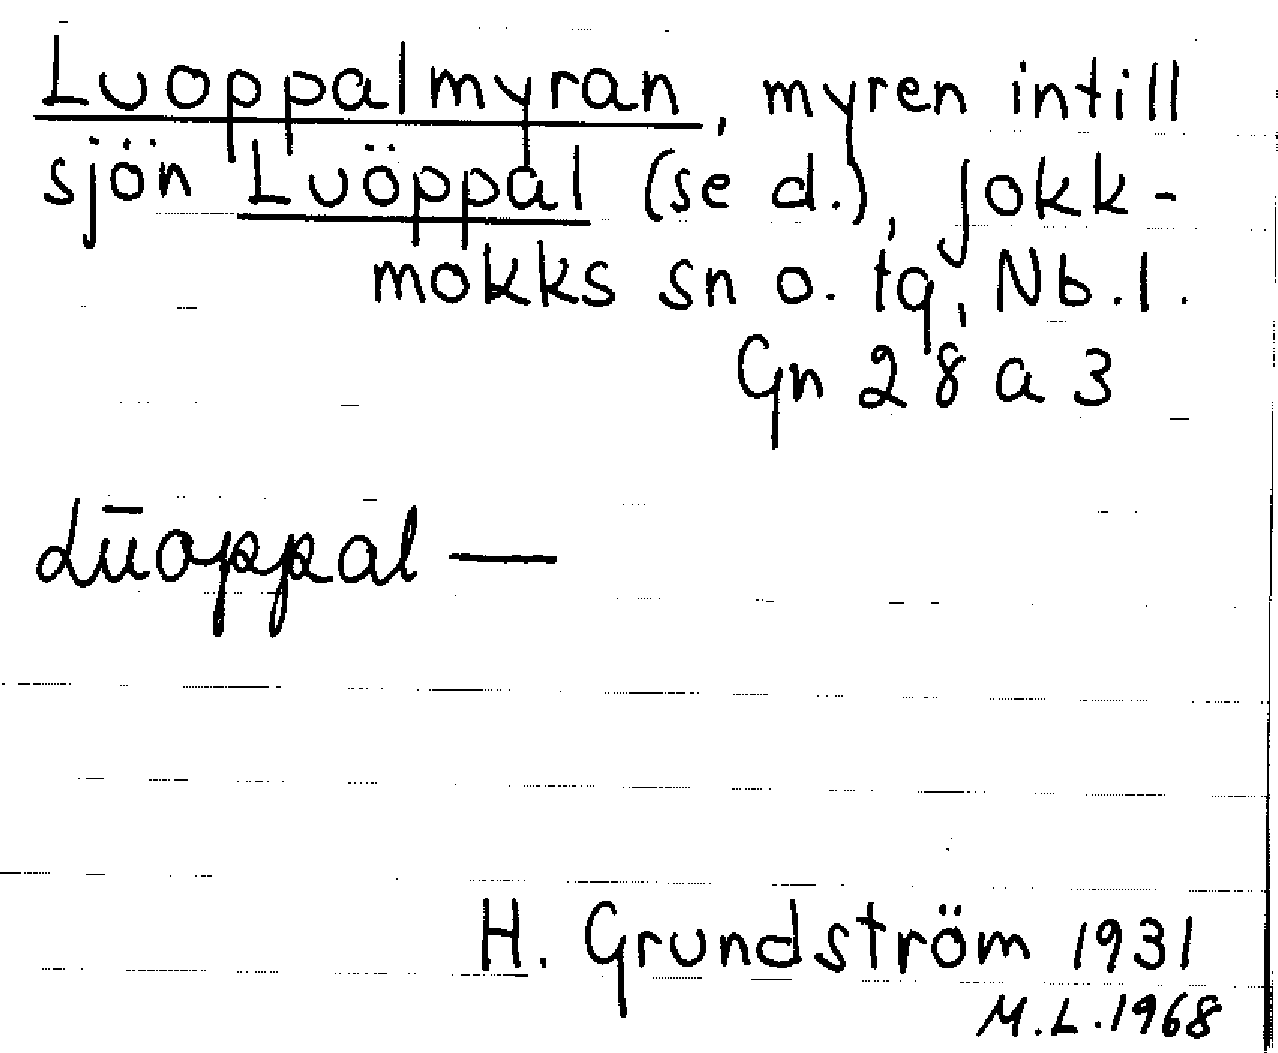 Luoppalmyran, myren intill
sjön Luöppal (se d.), Jokk-
mokks sn o. tg, Nb.l.
Gn 28 a 3
Lūoppal —
H. Grundström 1931
M.L.1968